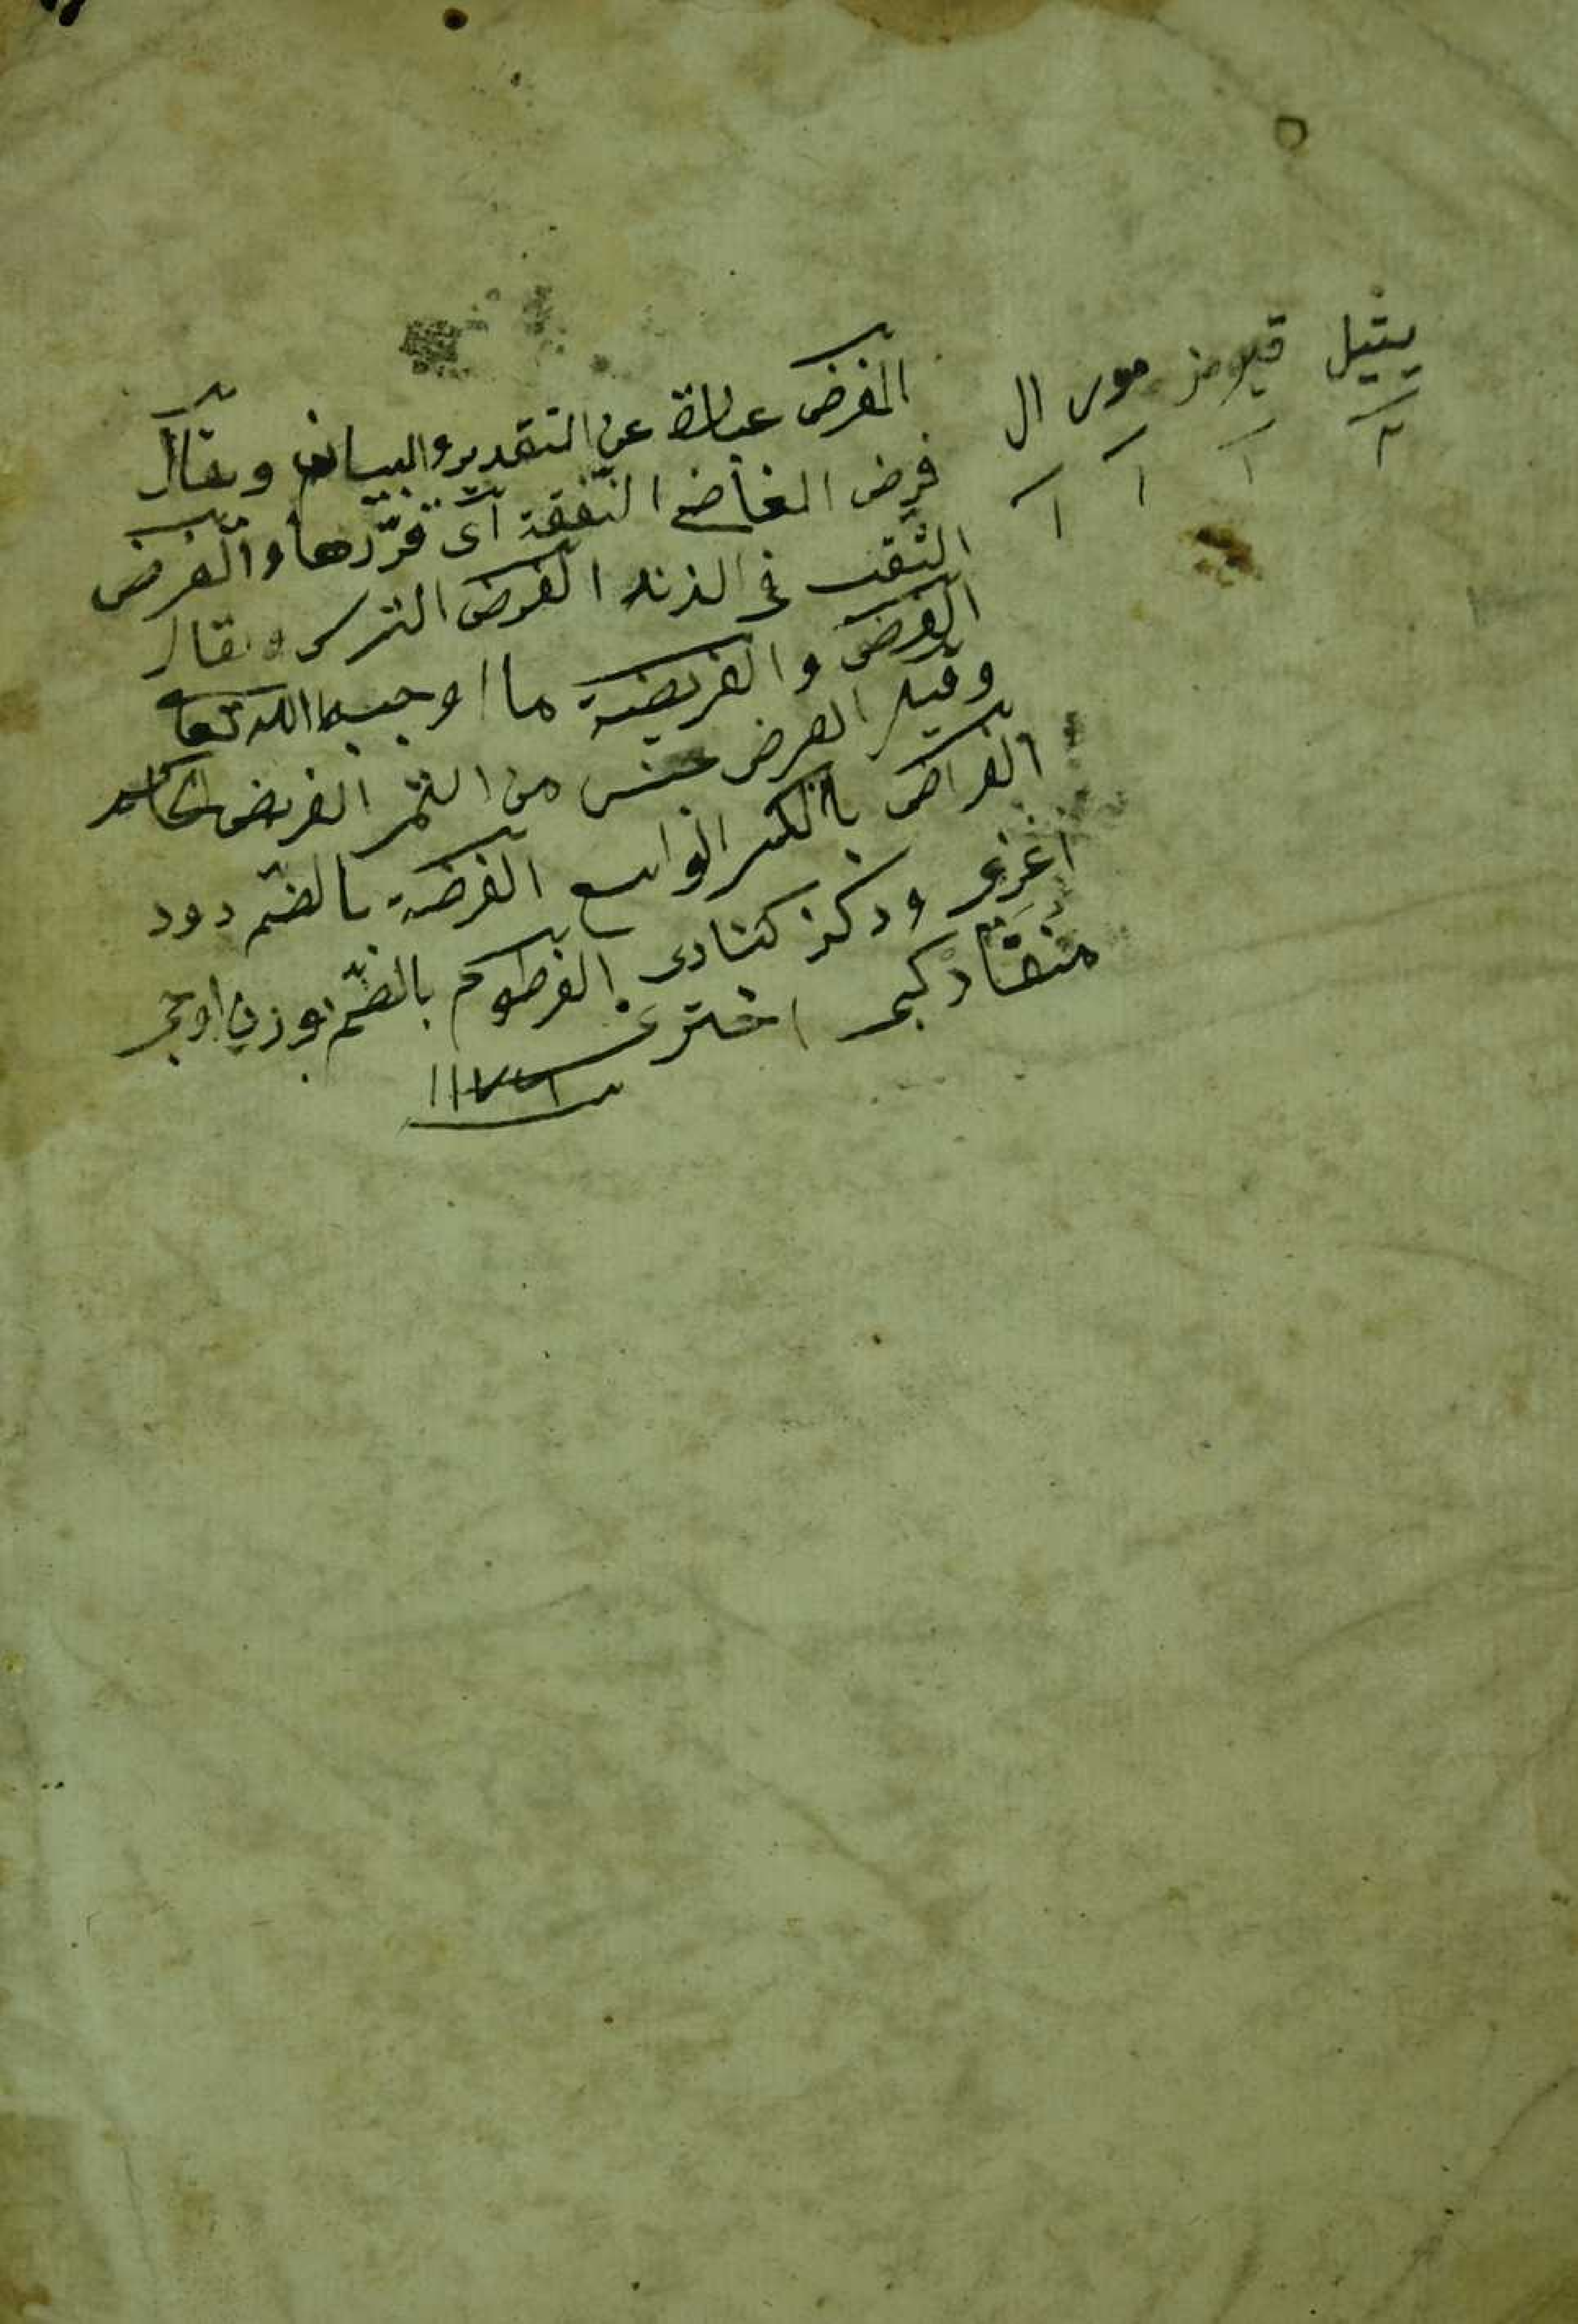 يشيل قيرمز مور ال
الفرض عبارة عن التقدير والبيان ويقال
فرض القاضى النفقة اى قدّرها والفرض
الثقب فى الزند الفرض الترس ويقال
الفرض والفريضة ما اوجبه الله تعا
وقيل الفرض جنس من التمر الفريض
الفراض بالكسر الواسع الفرضة بالضّم دود
اغزى ودكز كنارى الفرطوم بالضّم بوزن اوجى
منقار كبى اخترى
١١٧٦